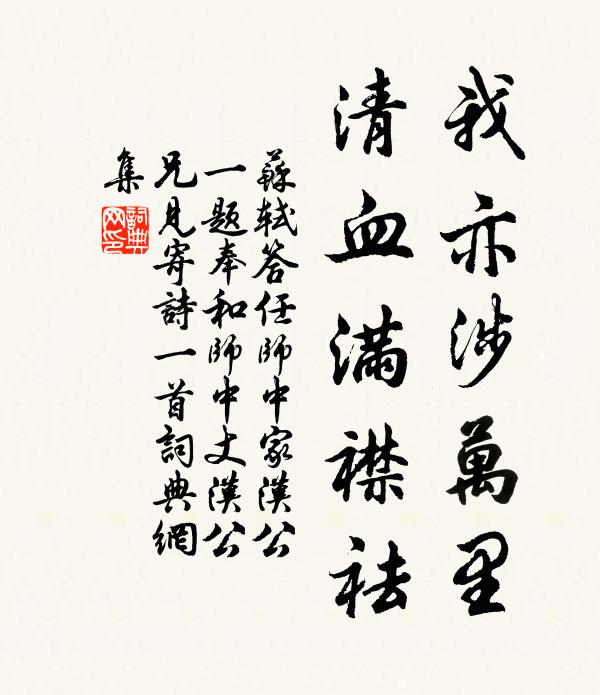 我亦涉萬里
清血满襟袪
蘇轼答任師中家漢公
一题奉和師中丈漢公
兄見寄詩一首詞典網
集
詞典網印